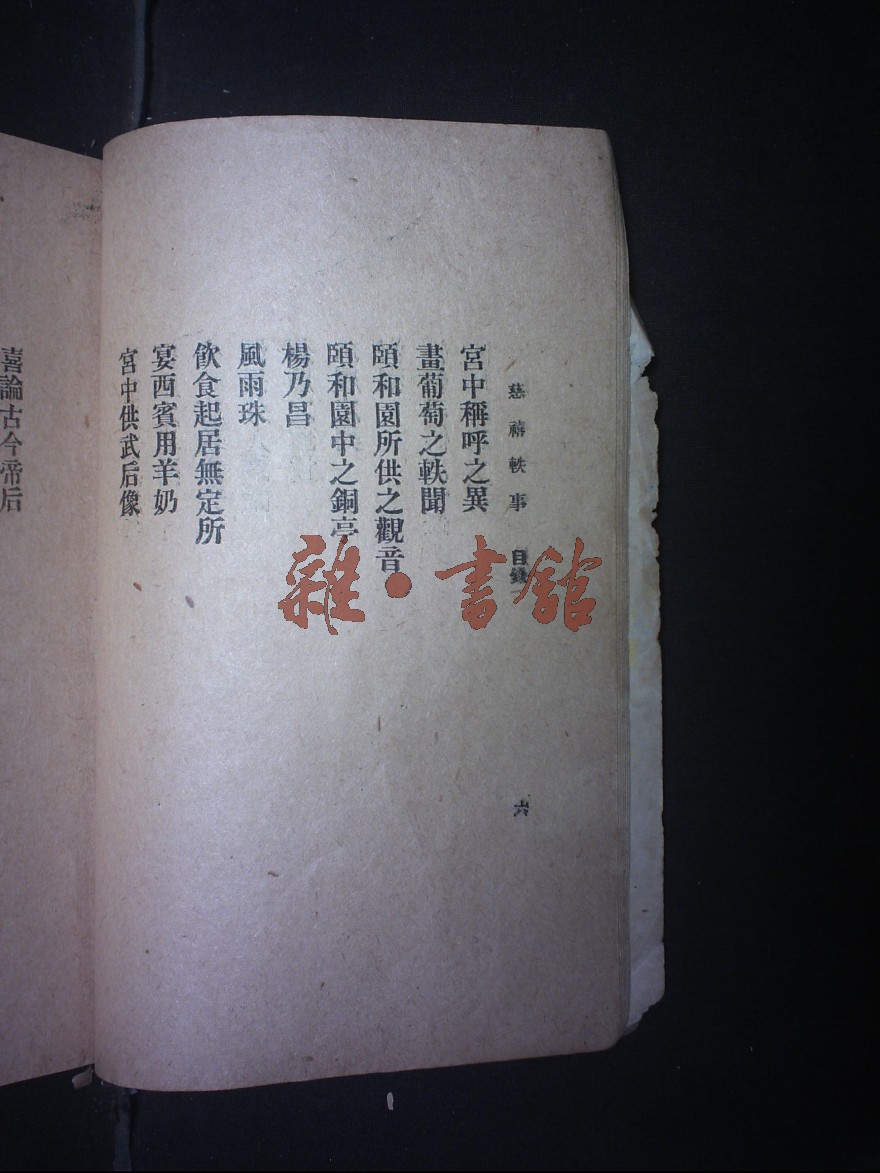 慈禧軼事 目錄 六
宮中稱呼之異
畫葡萄之軼聞
頤和園所供之觀音
頤和園中之銅亭
楊乃昌
風雨珠
飲食起居無定所
宴西賓用羊奶
宮中供武后像
喜論古今帝后
雜·書館